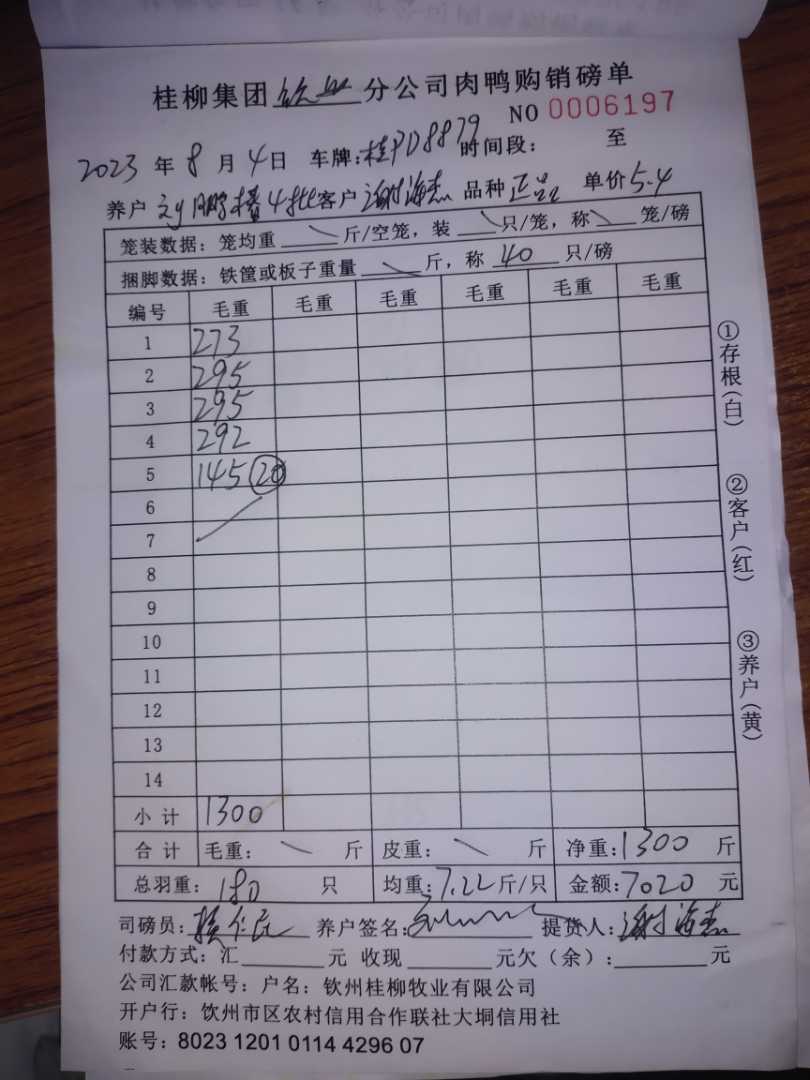 桂柳集团钦州分公司肉鸭购销磅单
NO 0006197
2023年8月4日 车牌:桂PD8879 时间段: 至
养户 鹏 4批 客户 谢海杰 品种 正品 单价 5.4
笼装数据: 笼均重 斤/空笼, 装 只/笼, 称 笼/磅
捆脚数据: 铁筐或板子重量 斤, 称 40 只/磅
编号 毛重 毛重 毛重 毛重 毛重 毛重
1 273
2 295
3 295
4 292
5 145 20
6
7
8
9
10
11
12
13
14
小计 1300
合计 毛重: 斤 皮重: 斤 净重: 1300 斤
总羽重: 180 只 均重: 7.22 斤/只 金额: 7020 元
司磅员: 养户签名: 提货人: 谢海杰
付款方式: 汇 元 收现 元欠(余): 元
公司汇款帐号: 户名: 钦州桂柳牧业有限公司
开户行: 饮州市区农村信用合作联社大垌信用社
账号: 8023 1201 0114 4296 07
①存根(白)
②客户(红)
③养户(黄)